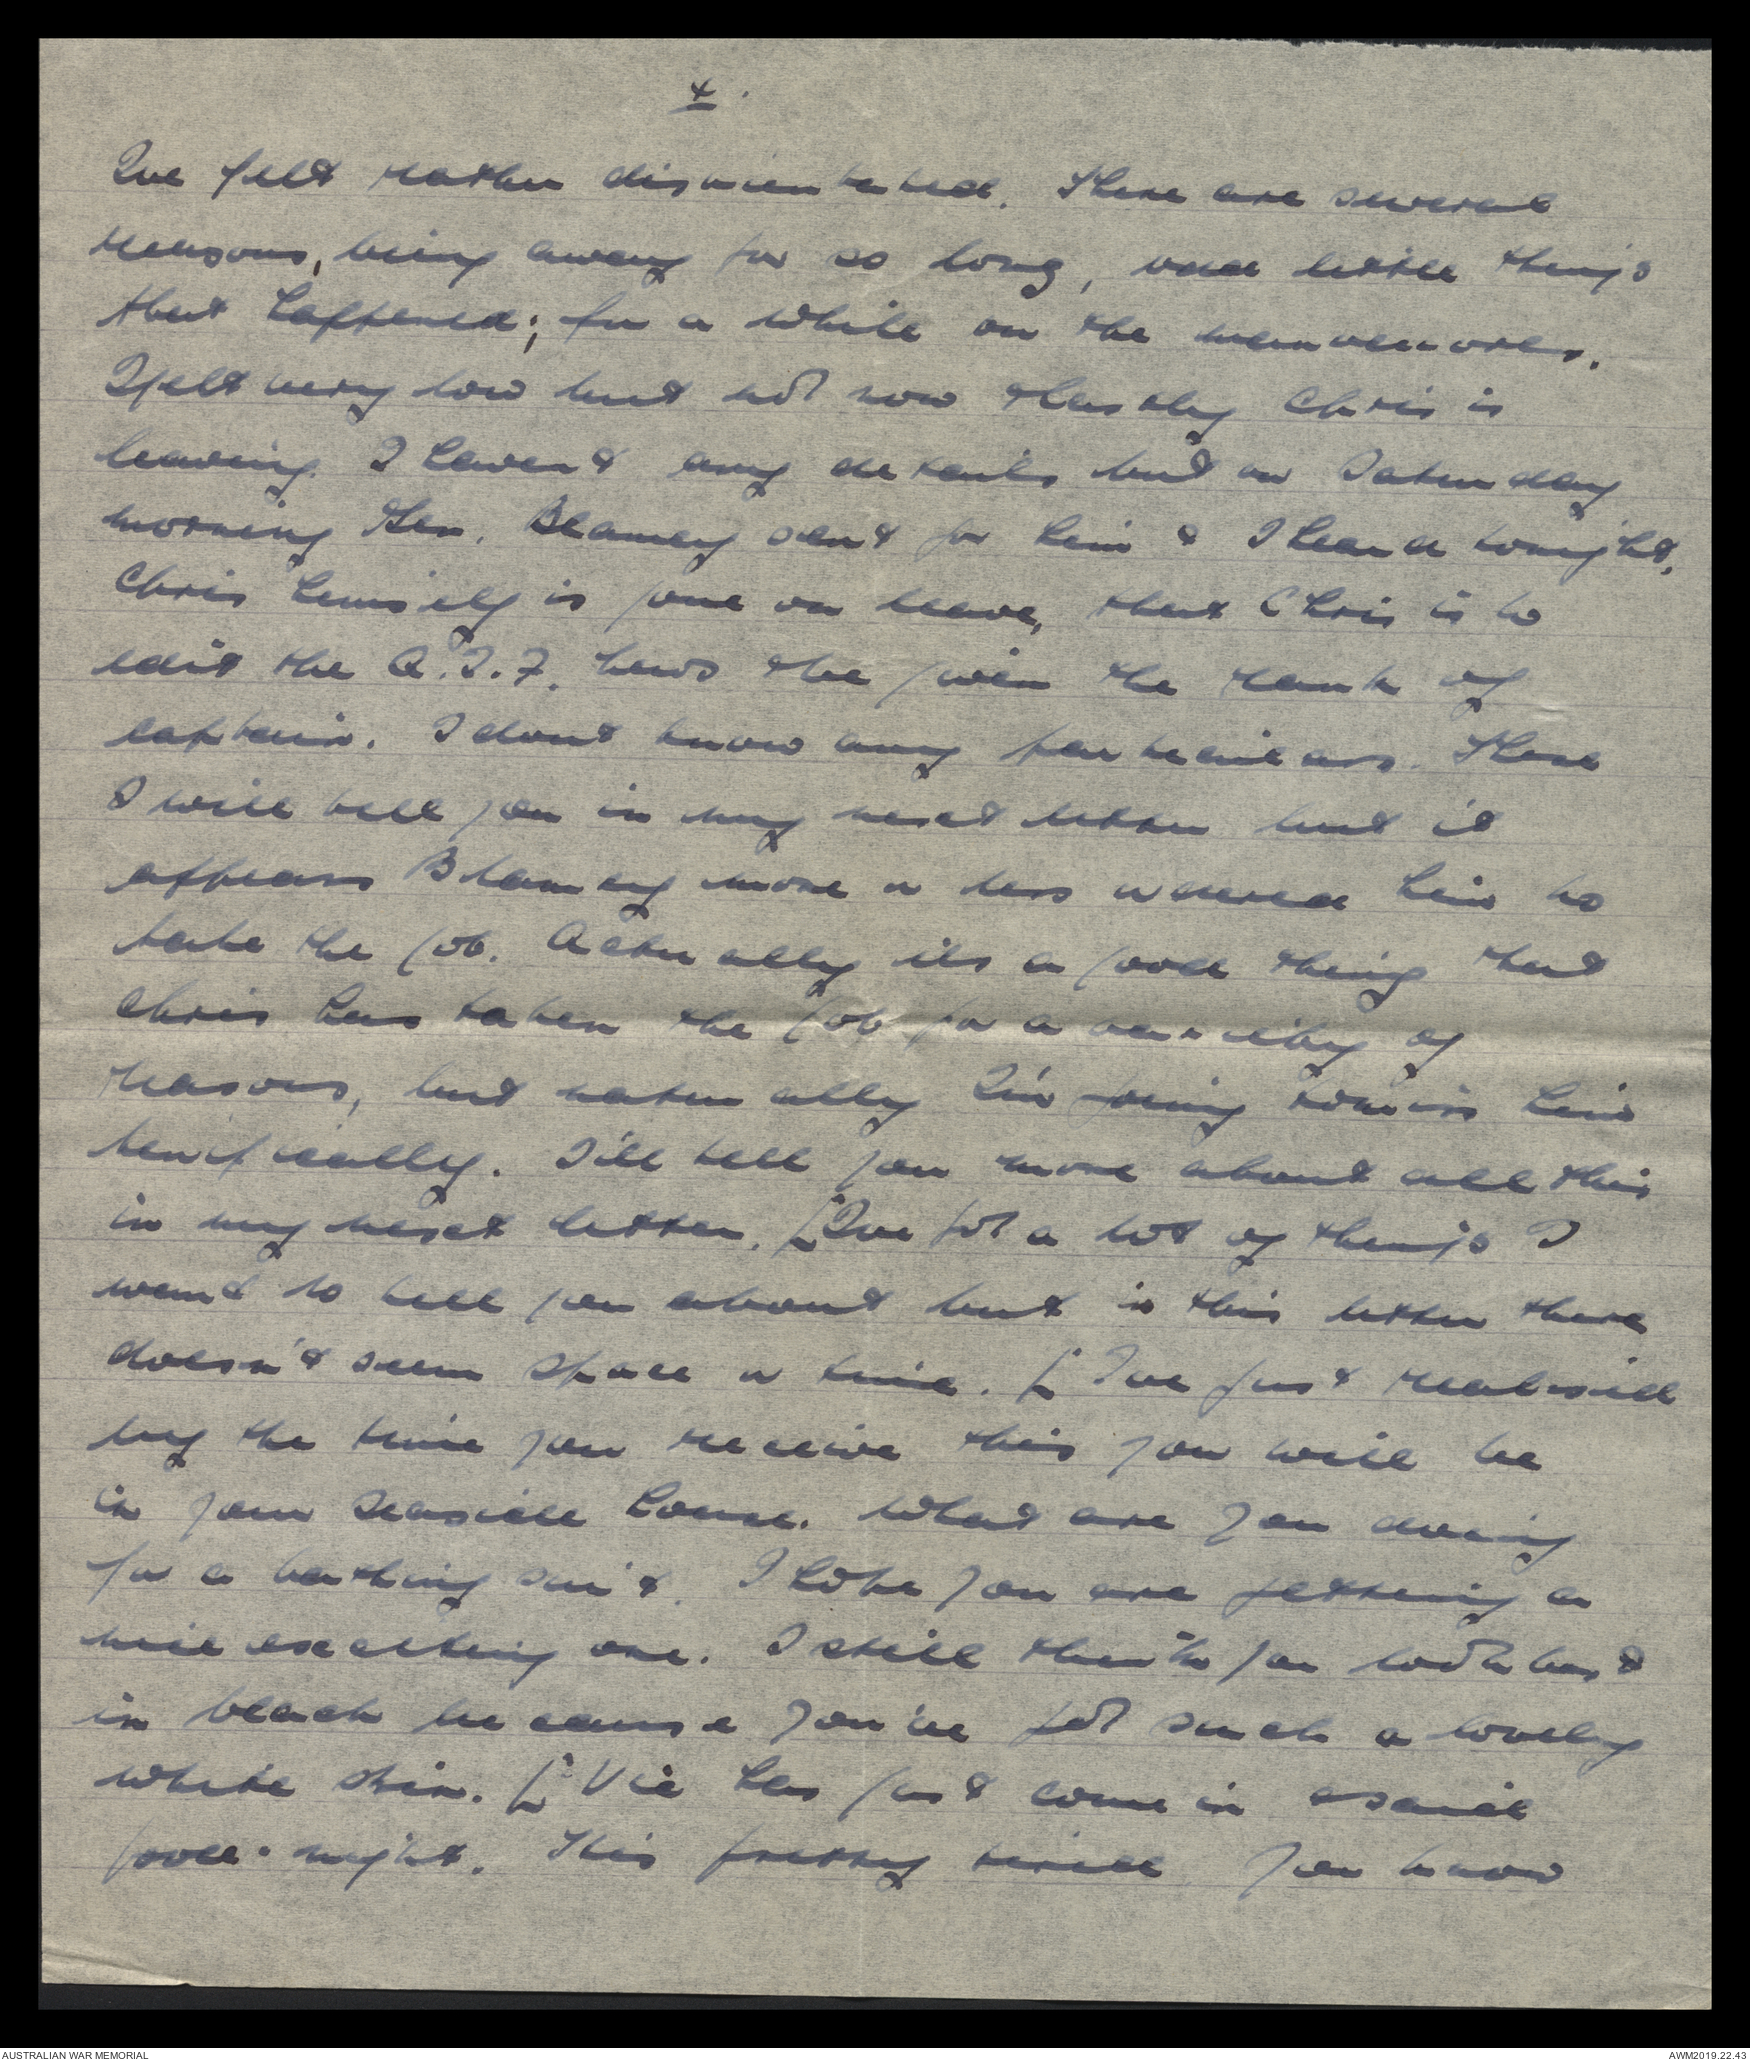 4.
I've felt rather disorientated. There are several
reasons, being away for so long, odd little things
that happened; for a while on the manoeuvres.
I felt very low but not now thastly Chris is
leaving. I haven't any details but on Saturday
morning Gen. Blamey sent for him & I heard tonight,
Chris himself is gone on leave, that Chris is to
edit the A.I.F. news & be given the rank of
captain. I dont know any particulars. These
I will tell you in my next letter but it
appears Blamey more or less ordered him to
take the job. Actually its a good thing that
Chris has taken the job for a variety of
reasons, but naturally I'm going to miss him
terrifically. I'll tell you more about all this
in my next letter. [I've got a lot of things I
want to tell you about but in this letter there
doesn't seem space or time. [I've just realised
by the time you receive this you will be
in your seaside house. What are you doing
for a bathing suit. I hope you are getting a
nice exciting one. I still think you look best
in black because you've got such a lovely
white skin. [Vic has just come in & said
good-night. He's pretty tired. You know
AUSTRALIAN WAR MEMORIAL
AWM2019.22.43